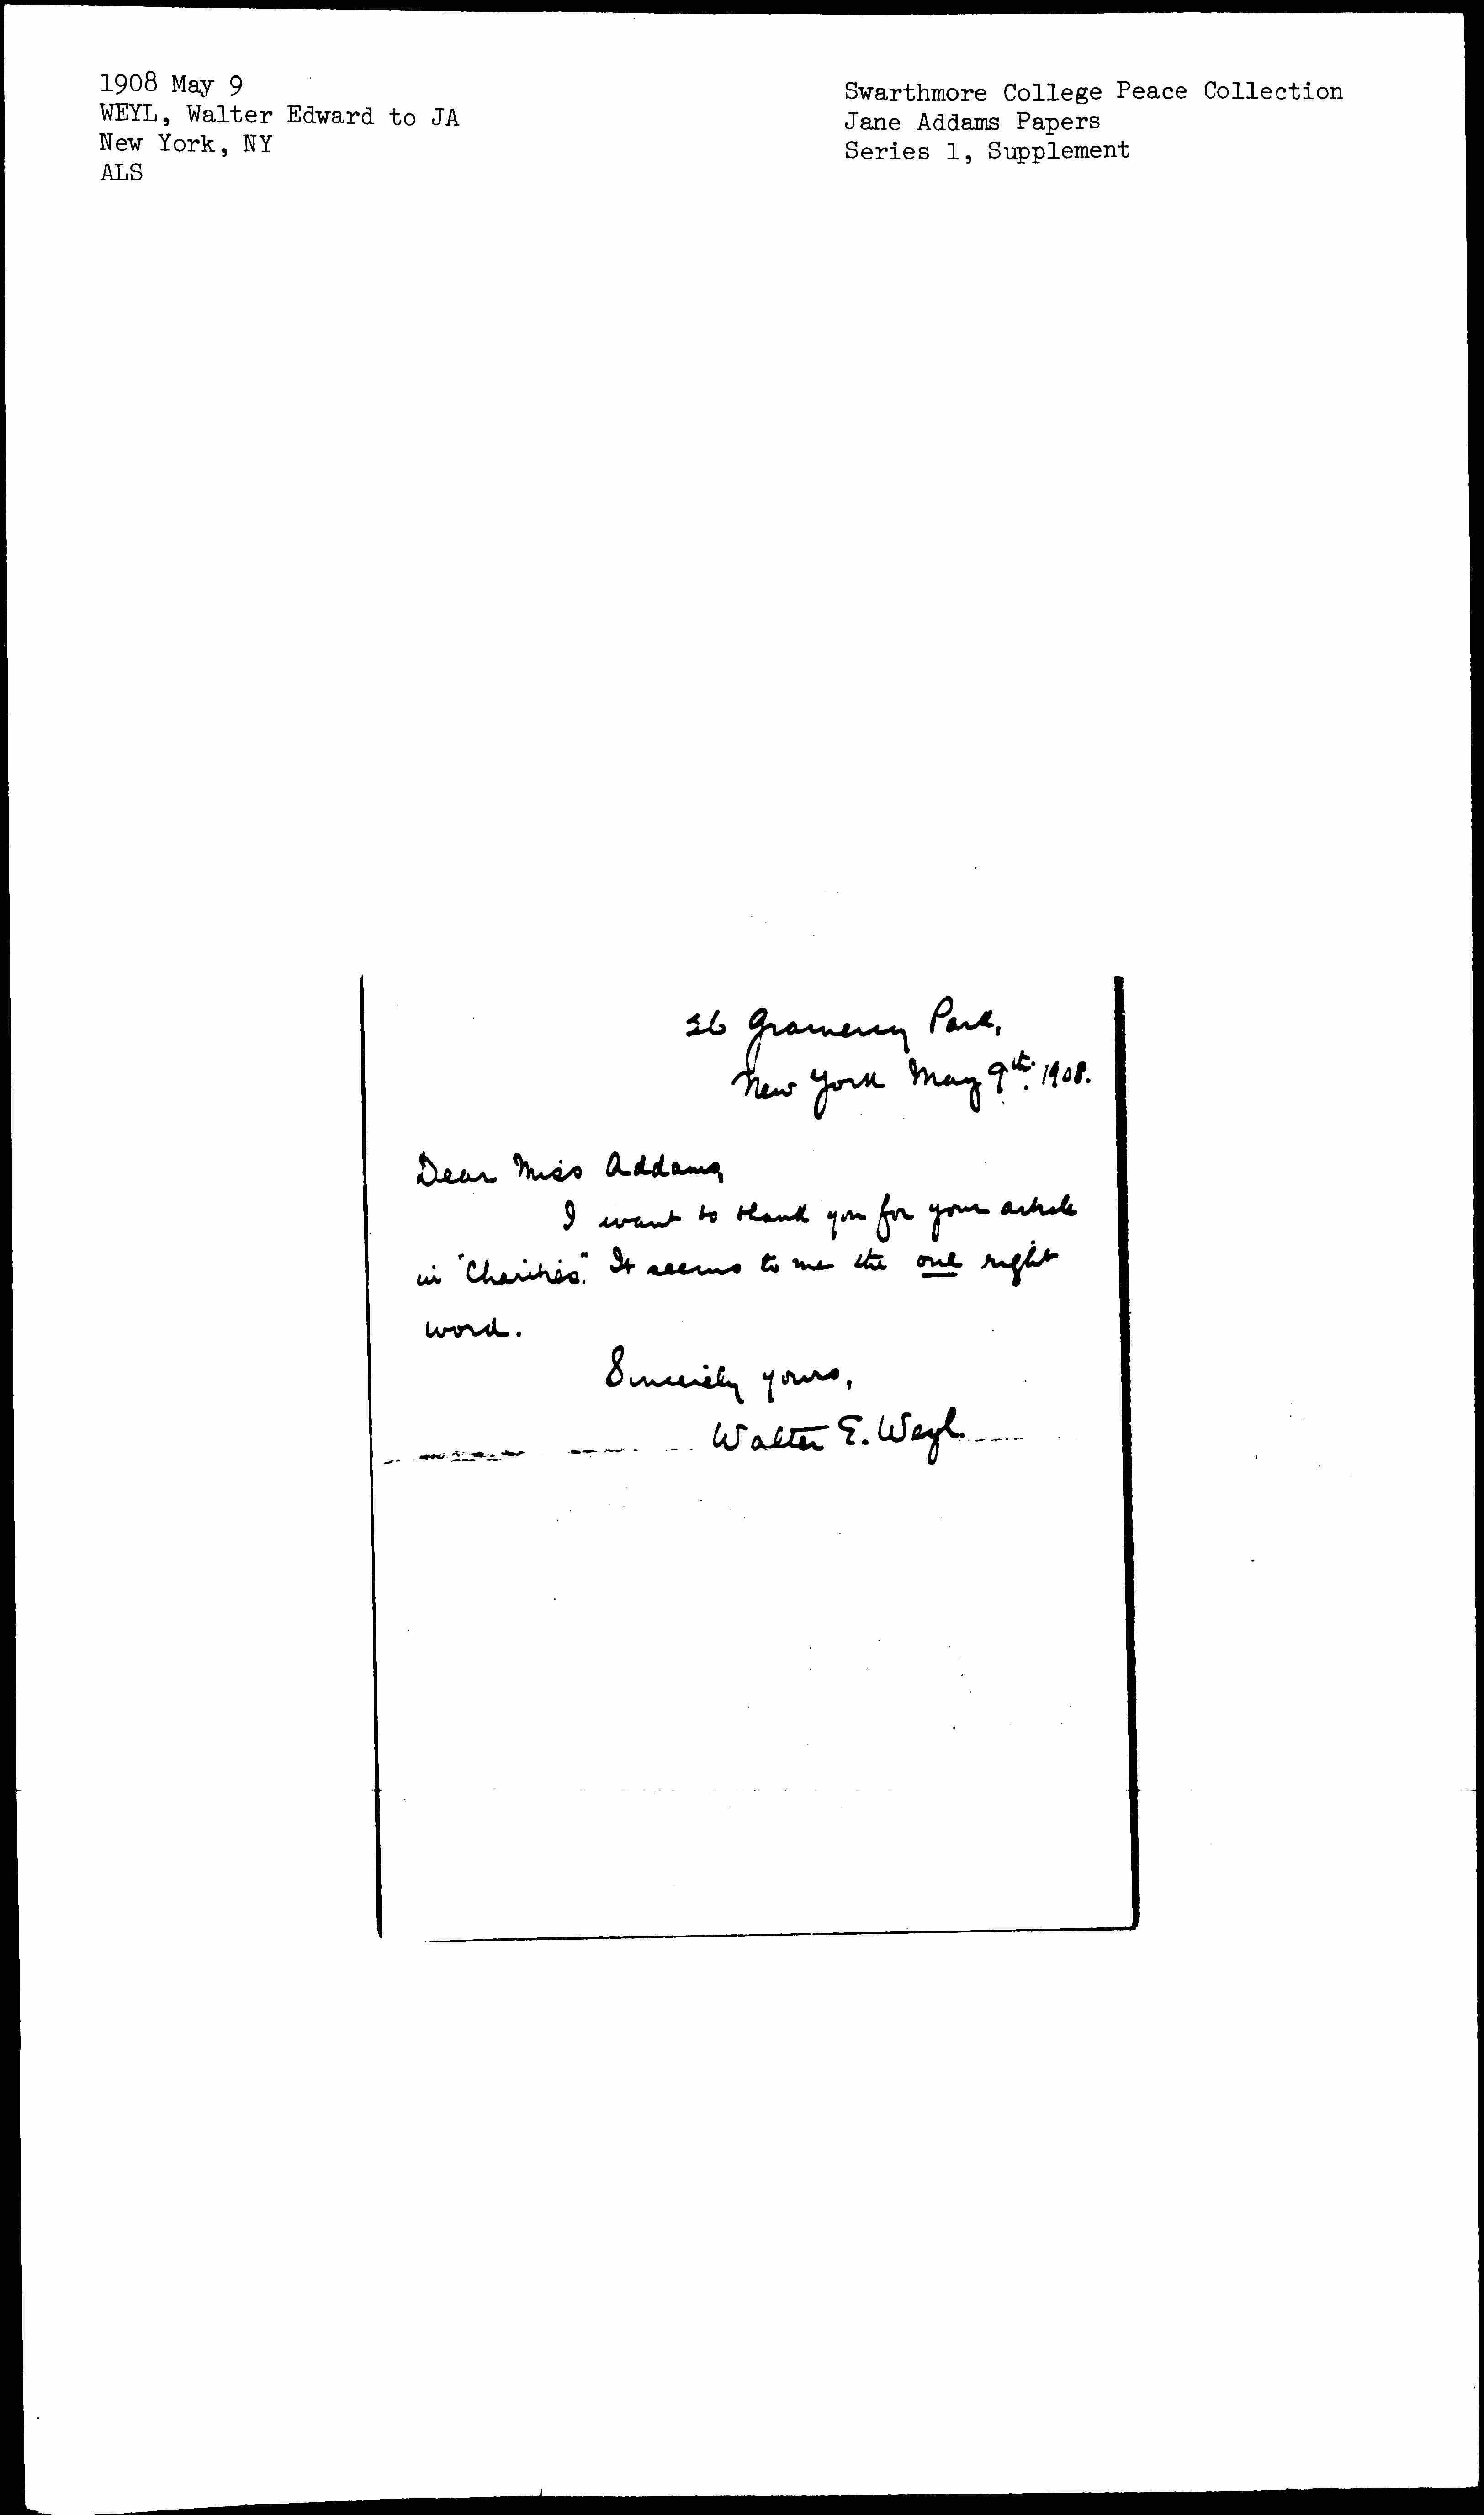 1908 May 9
WEYL, Walter Edward to JA
New York, NY
ALS
Swarthmore College Peace Collection
Jane Addams Papers
Series 1, Supplement
Gramercy Park,
New York May 9th. 1908.
Dear Miss Addams,
I want to thank you for your article
in "Charities." It seems to me the one right
word.
Sincerely yours,
Walter E. Weyl.